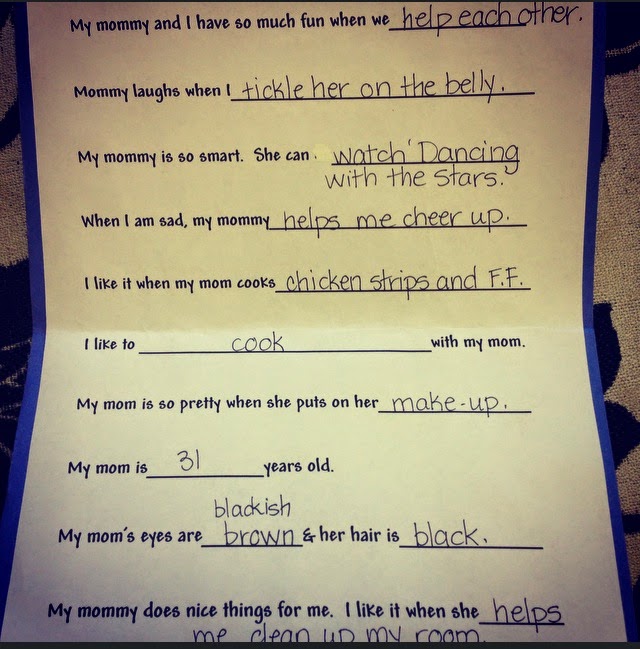 My mommy and I have so much fun when we help each other.
Mommy laughs when I tickle her on the belly.
My mommy is so smart. She can watch 'Dancing
with the Stars.'
When I am sad, my mommy helps me cheer up.
I like it when my mom cooks chicken strips and F.F.
I like to cook with my mom.
My mom is so pretty when she puts on her make-up.
My mom is 31 years old.
blackish
My mom's eyes are brown & her hair is black.
My mommy does nice things for me. I like it when she helps
me clean up my room.